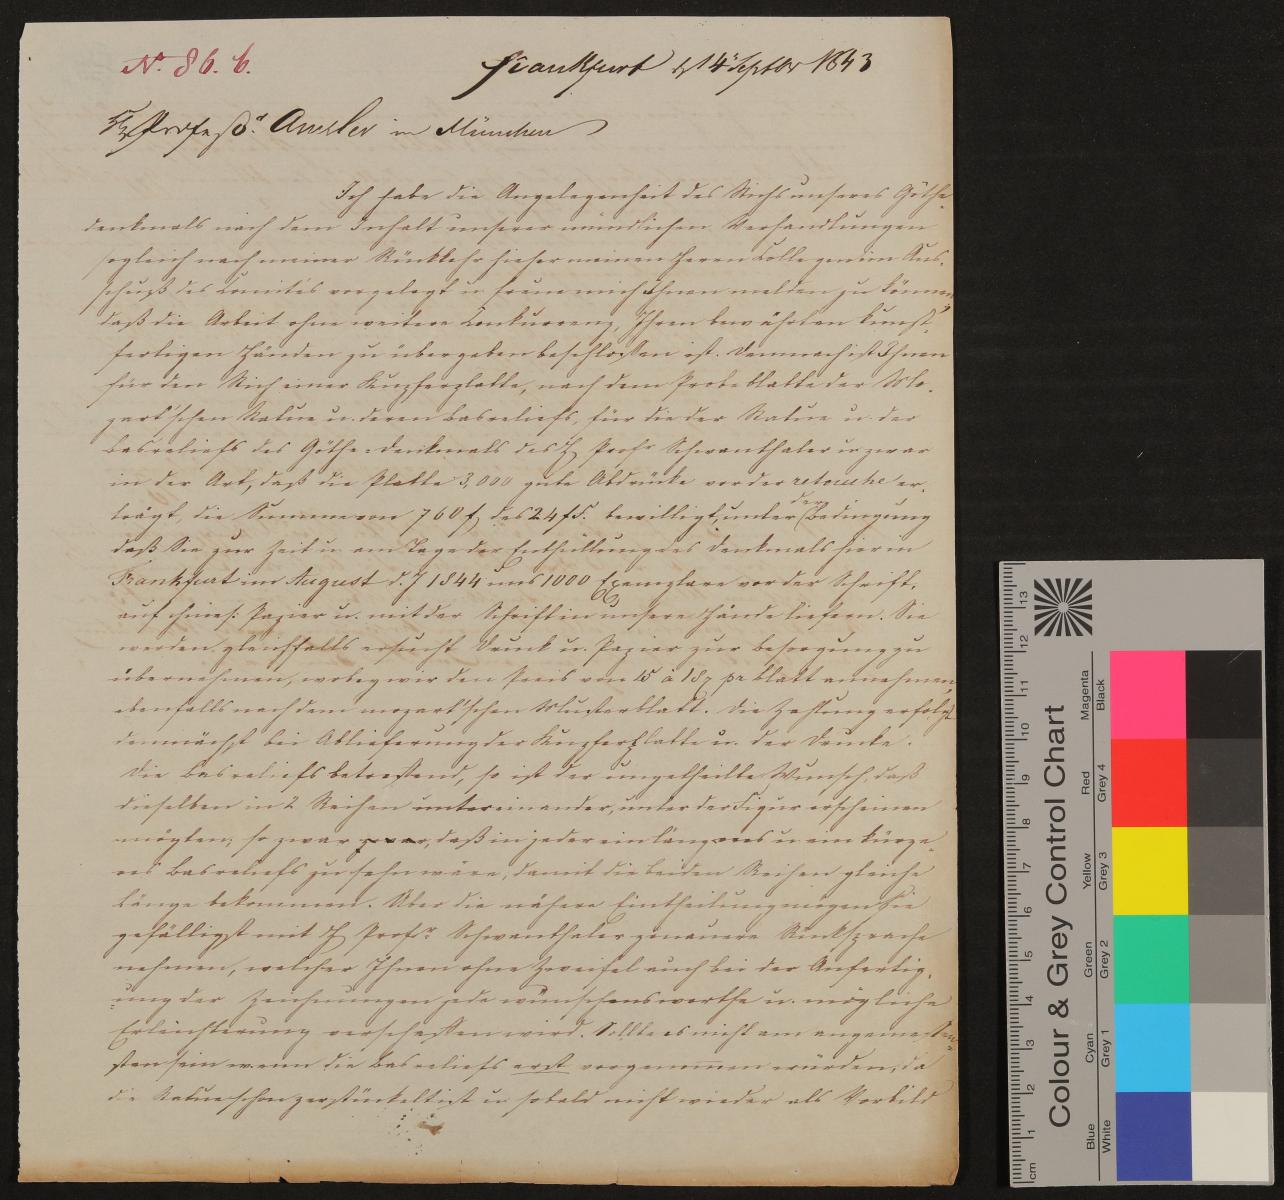 N. 86. b.
Frankfurt d 14 Septbr 1843
H Profeßor Amsler in München
Ich habe die Angelegenheit des Stichs unseres Göthe-
denkmals nach dem Inhalt unserer mündlichen Verhandlungen
sogleich nach meiner Rückkehr hieher meinen Herren Collegen im Aus-
schuß des Comités vorgelegt u freue mich Ihnen melden zu können
daß die Arbeit ohne weitere Conkurrenz, Ihren bewährten kunst-
fertigen Händen zu übergeben beschloßen ist. Demnach ist Ihnen
für den Stich einer Kupferplatte, nach dem Probeblatte der Mo-
zart'schen Statue u. deren Basreliefs, für die der Statue u. der
Basreliefs des Göthe-denkmals des H Profr Schwanthaler u zwar
in der Art, daß die Platte 3,000 gute Abdrücke vor der retouche er-
trägt, die Summe von 760 f des 24 f F. bewilligt, unter der Bedingung
daß Sie zur Zeit u. am Tage der Enthüllung des Denkmals hier in
Frankfurt im August d. J 1844 uns 1000 Exemplare vor der Schrift,
auf chines: Papier u. mit der Schrift in unsere Hände liefern. Sie
werden gleichfalls ersucht Druck u. Papier zur Besorgung zu
übernehmen, wobey wir den Preis von 15 a 18 pr Blatt annehmen,
ebenfalls nach dem mozart'schen Musterblatt. Die Zahlung erfolgt
demnächst bei Ablieferung der Kupferplatte u. der Drucke.
Die Basreliefs betreffend, so ist der ungetheilte Wunsch, daß
dieselben in 2 Reihen untereinander, unter der Figur erscheinen
mögten, so zwar daß in jeder ein längeres u ein kürze-
res Basreliefs zu sehn wäre, damit die beiden Reihen gleiche
Länge bekommen. Über die nähere Eintheilung mögen Sie
gefälligst mit H Profr Schwanthaler genauere Rücksprache
nehmen, welcher Ihnen ohne Zweifel auch bei der Anfertig-
ung der Zeichnungen jede wünschenswerthe u. mögliche
Erleichterung verschaffen wird. Sollte es nicht am angemessen-
sten sein wenn die Basreliefs erst vorgenommen würden, da
die Statue schon zerstückelt ist u sobald nicht wieder als Vorbild
Colour & Grey Control Chart
Blue Cyan Green Yellow Red Magenta
White Grey 1 Grey 2 Grey 3 Grey 4 Black
cm 1 2 3 4 5 6 7 8 9 10 11 12 13